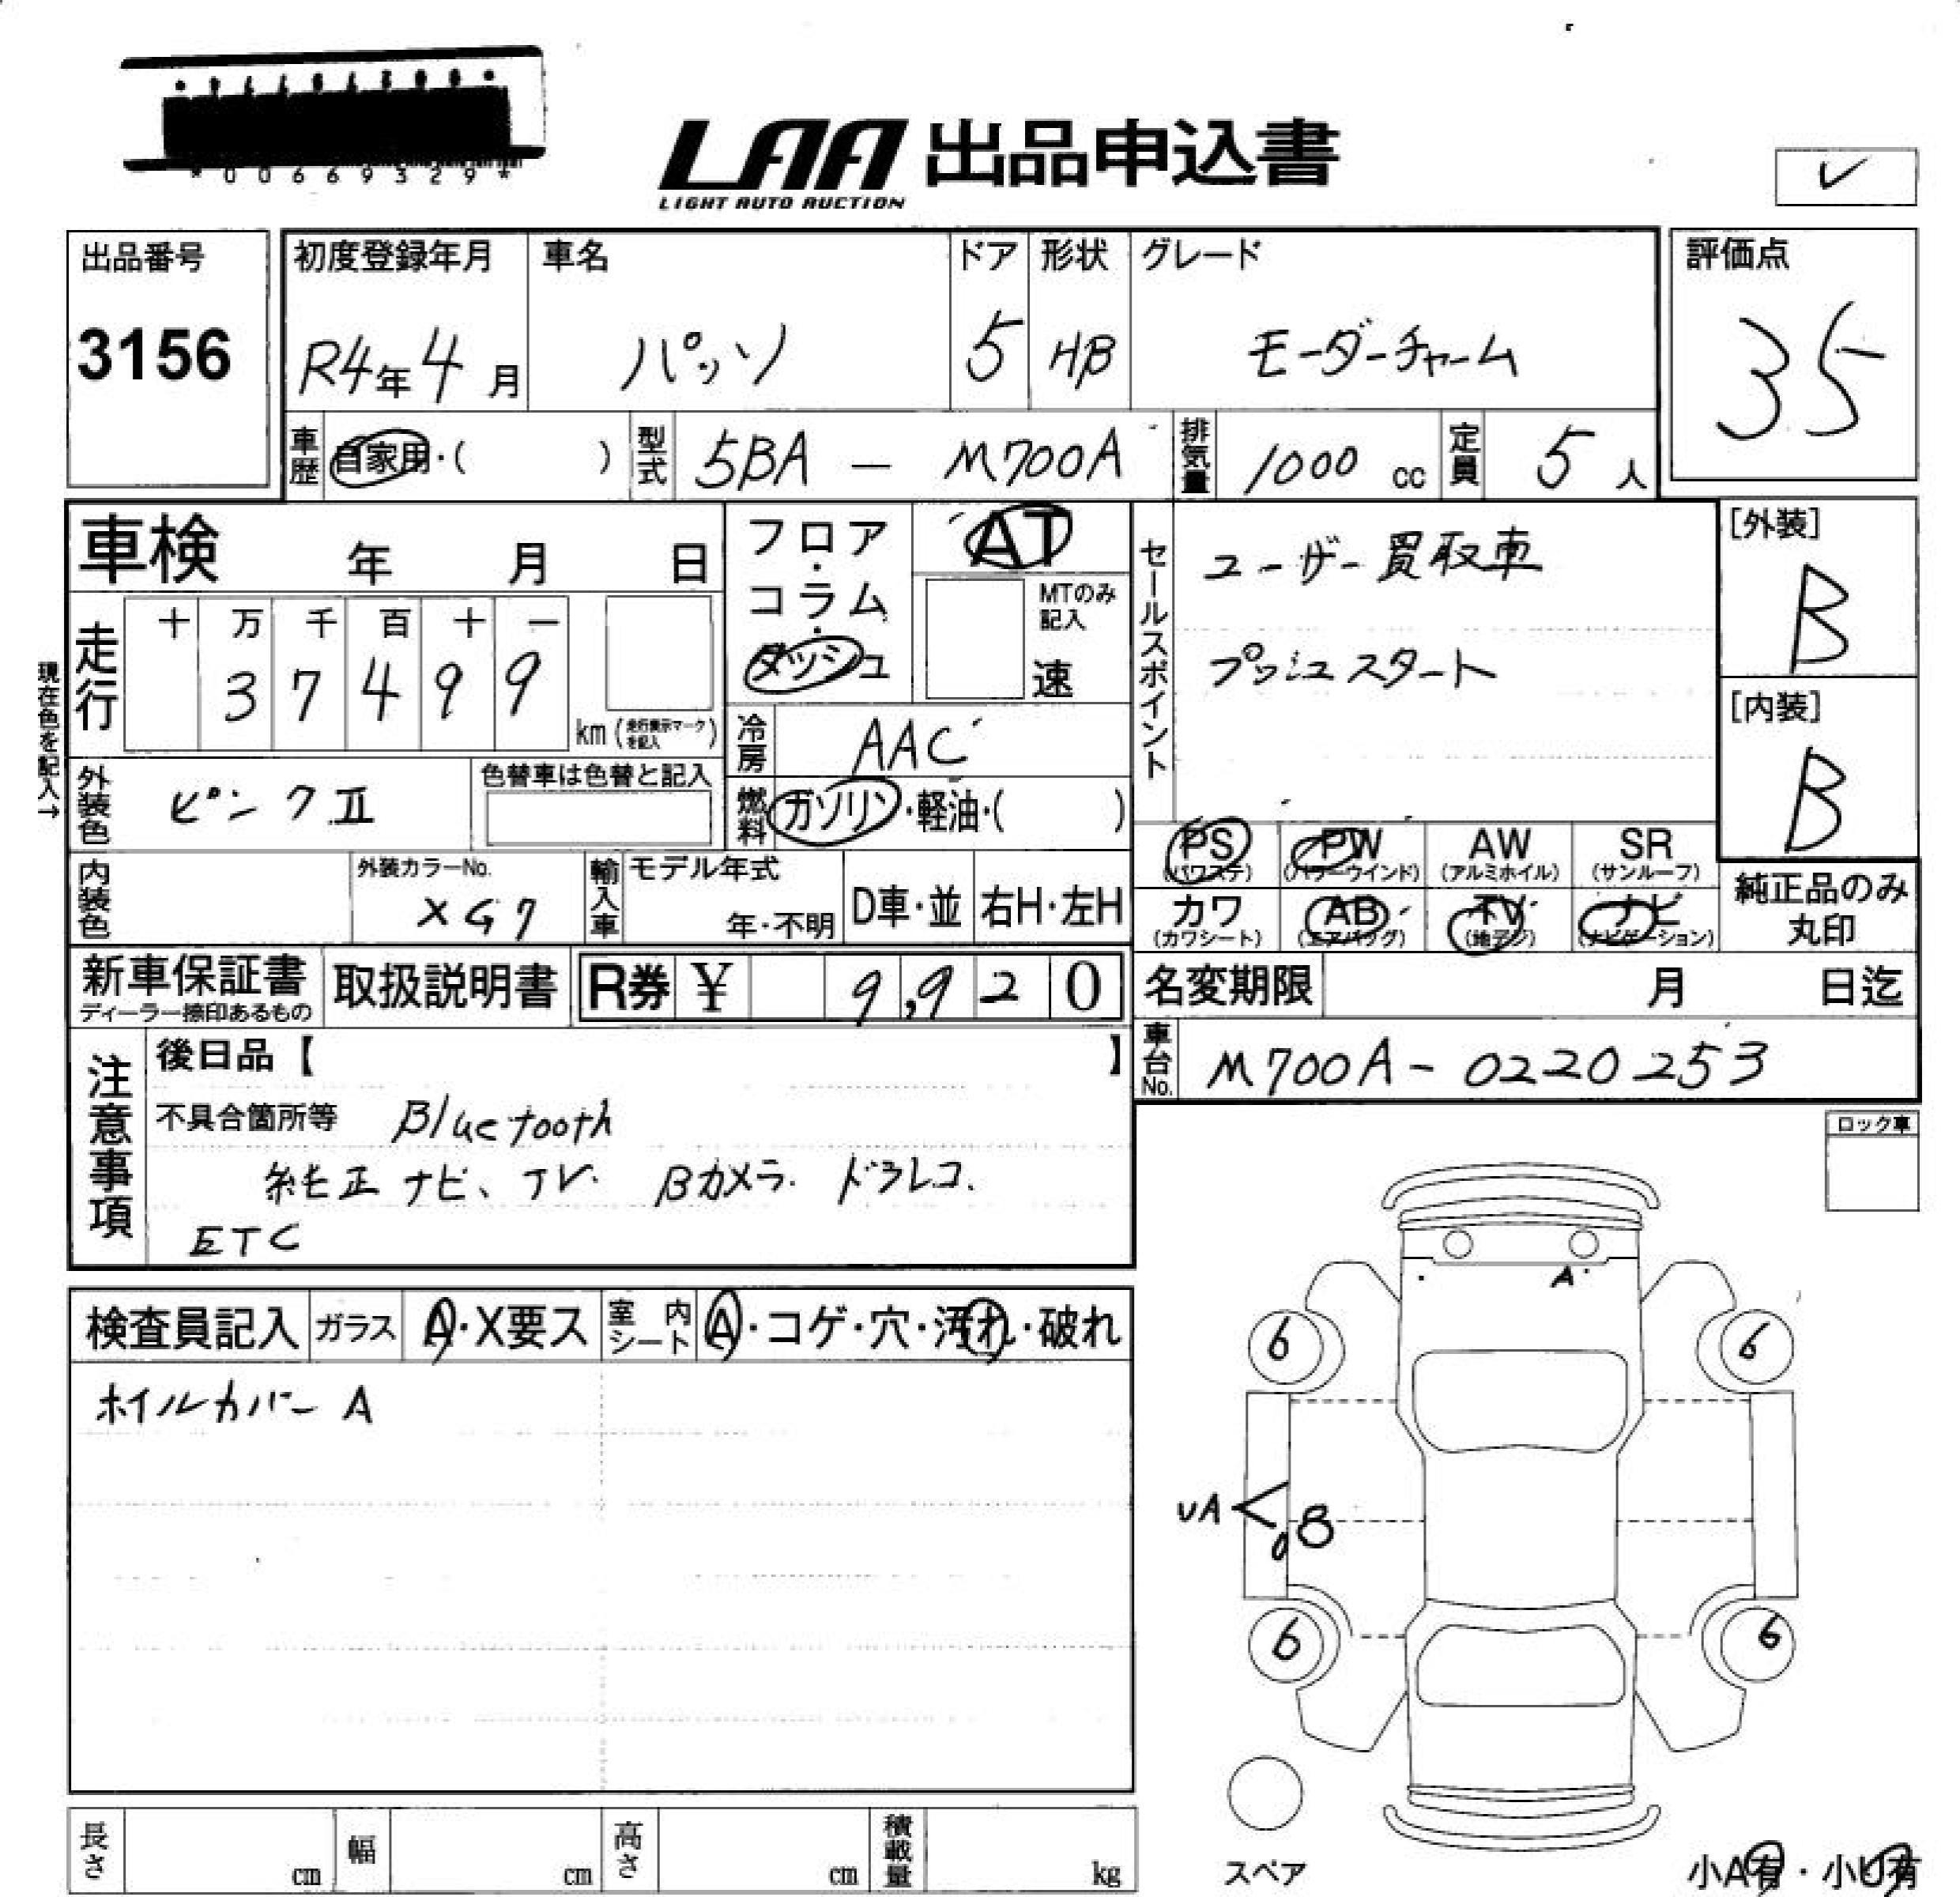 *00669329*
LAA 出品申込書
LIGHT AUTO AUCTION
出品番号
3156
初度登録年月
R4年 4月
車名
パッソ
ドア
5
形状
HB
グレード
モーダーチャーム
評価点
35
車歴
自家用・( )
型式
5BA - M700A
排気量
1000 cc
定員
5 人
車検 年 月 日
現在色を記入→
走行
十 万 千 百 十 一
3 7 4 9 9
km (走行表示マークを記入)
フロア・コラム・ダッシュ
AT
MTのみ記入
速
冷房
AAC
燃料
ガソリン・軽油・( )
セールスポイント
ユーザー買取車
プッシュスタート
[外装]
B
[内装]
B
外装色
ピンクⅡ
色替車は色替と記入
内装色
外装カラーNo.
XG7
輸入車
モデル年式
年・不明
D車・並
右H・左H
PS
(パワステ)
PW
(パワーウインド)
AW
(アルミホイル)
SR
(サンルーフ)
カワ
(カワシート)
AB
(エアバッグ)
TV
(地デジ)
ナビ
(ナビゲーション)
純正品のみ
丸印
新車保証書
ディーラー捺印あるもの
取扱説明書
R券 ¥ 9,920
名変期限 月 日迄
車台No.
M700A-0220253
注意事項
後日品【 】
不具合箇所等 Bluetooth
純正ナビ、TV. Bカメラ. ドラレコ.
ETC
ロック車
検査員記入
ガラス
A・X要ス
室内シート
A・コゲ・穴・汚れ・破れ
ホイルカバー A
A
6
6
UA
B
6
6
スペア
小A有・小U有
長さ cm
幅 cm
高さ cm
積載量 kg